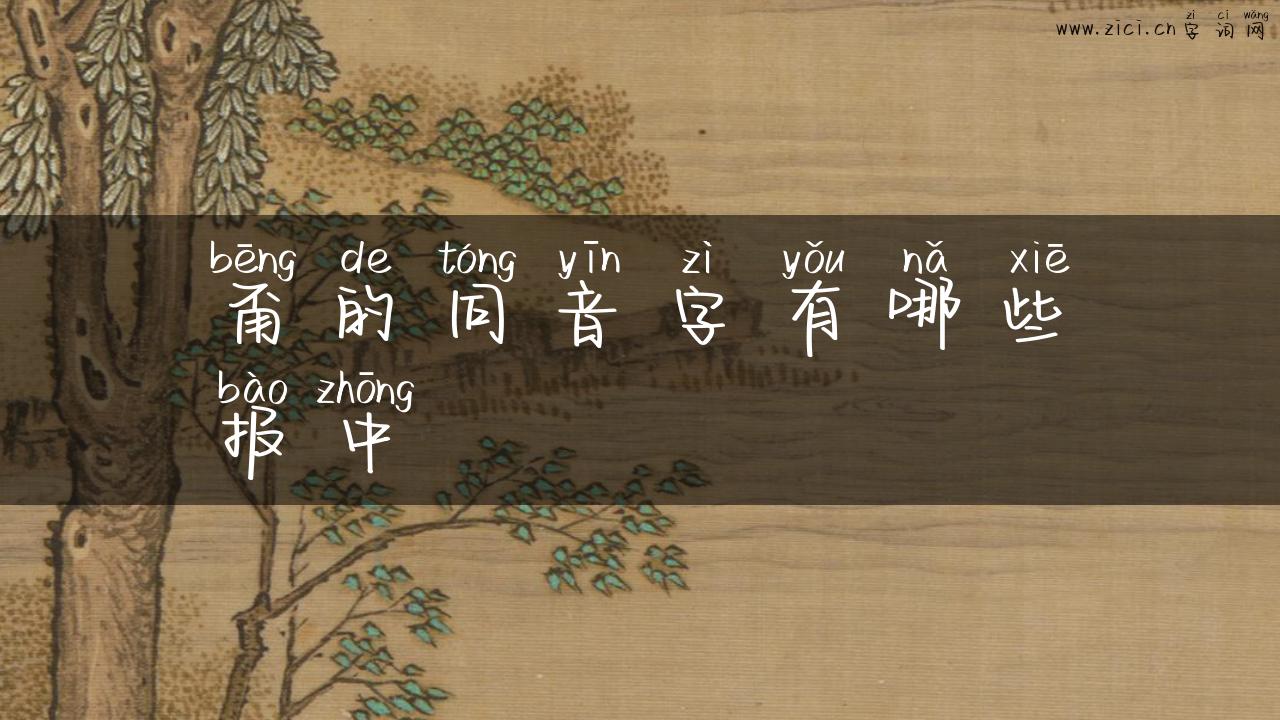 www.zici.cn zì cí wǎng 字词网
bēng de tóng yīn zì yǒu nǎ xiē
甭的同音字有哪些
bào zhōng
报中